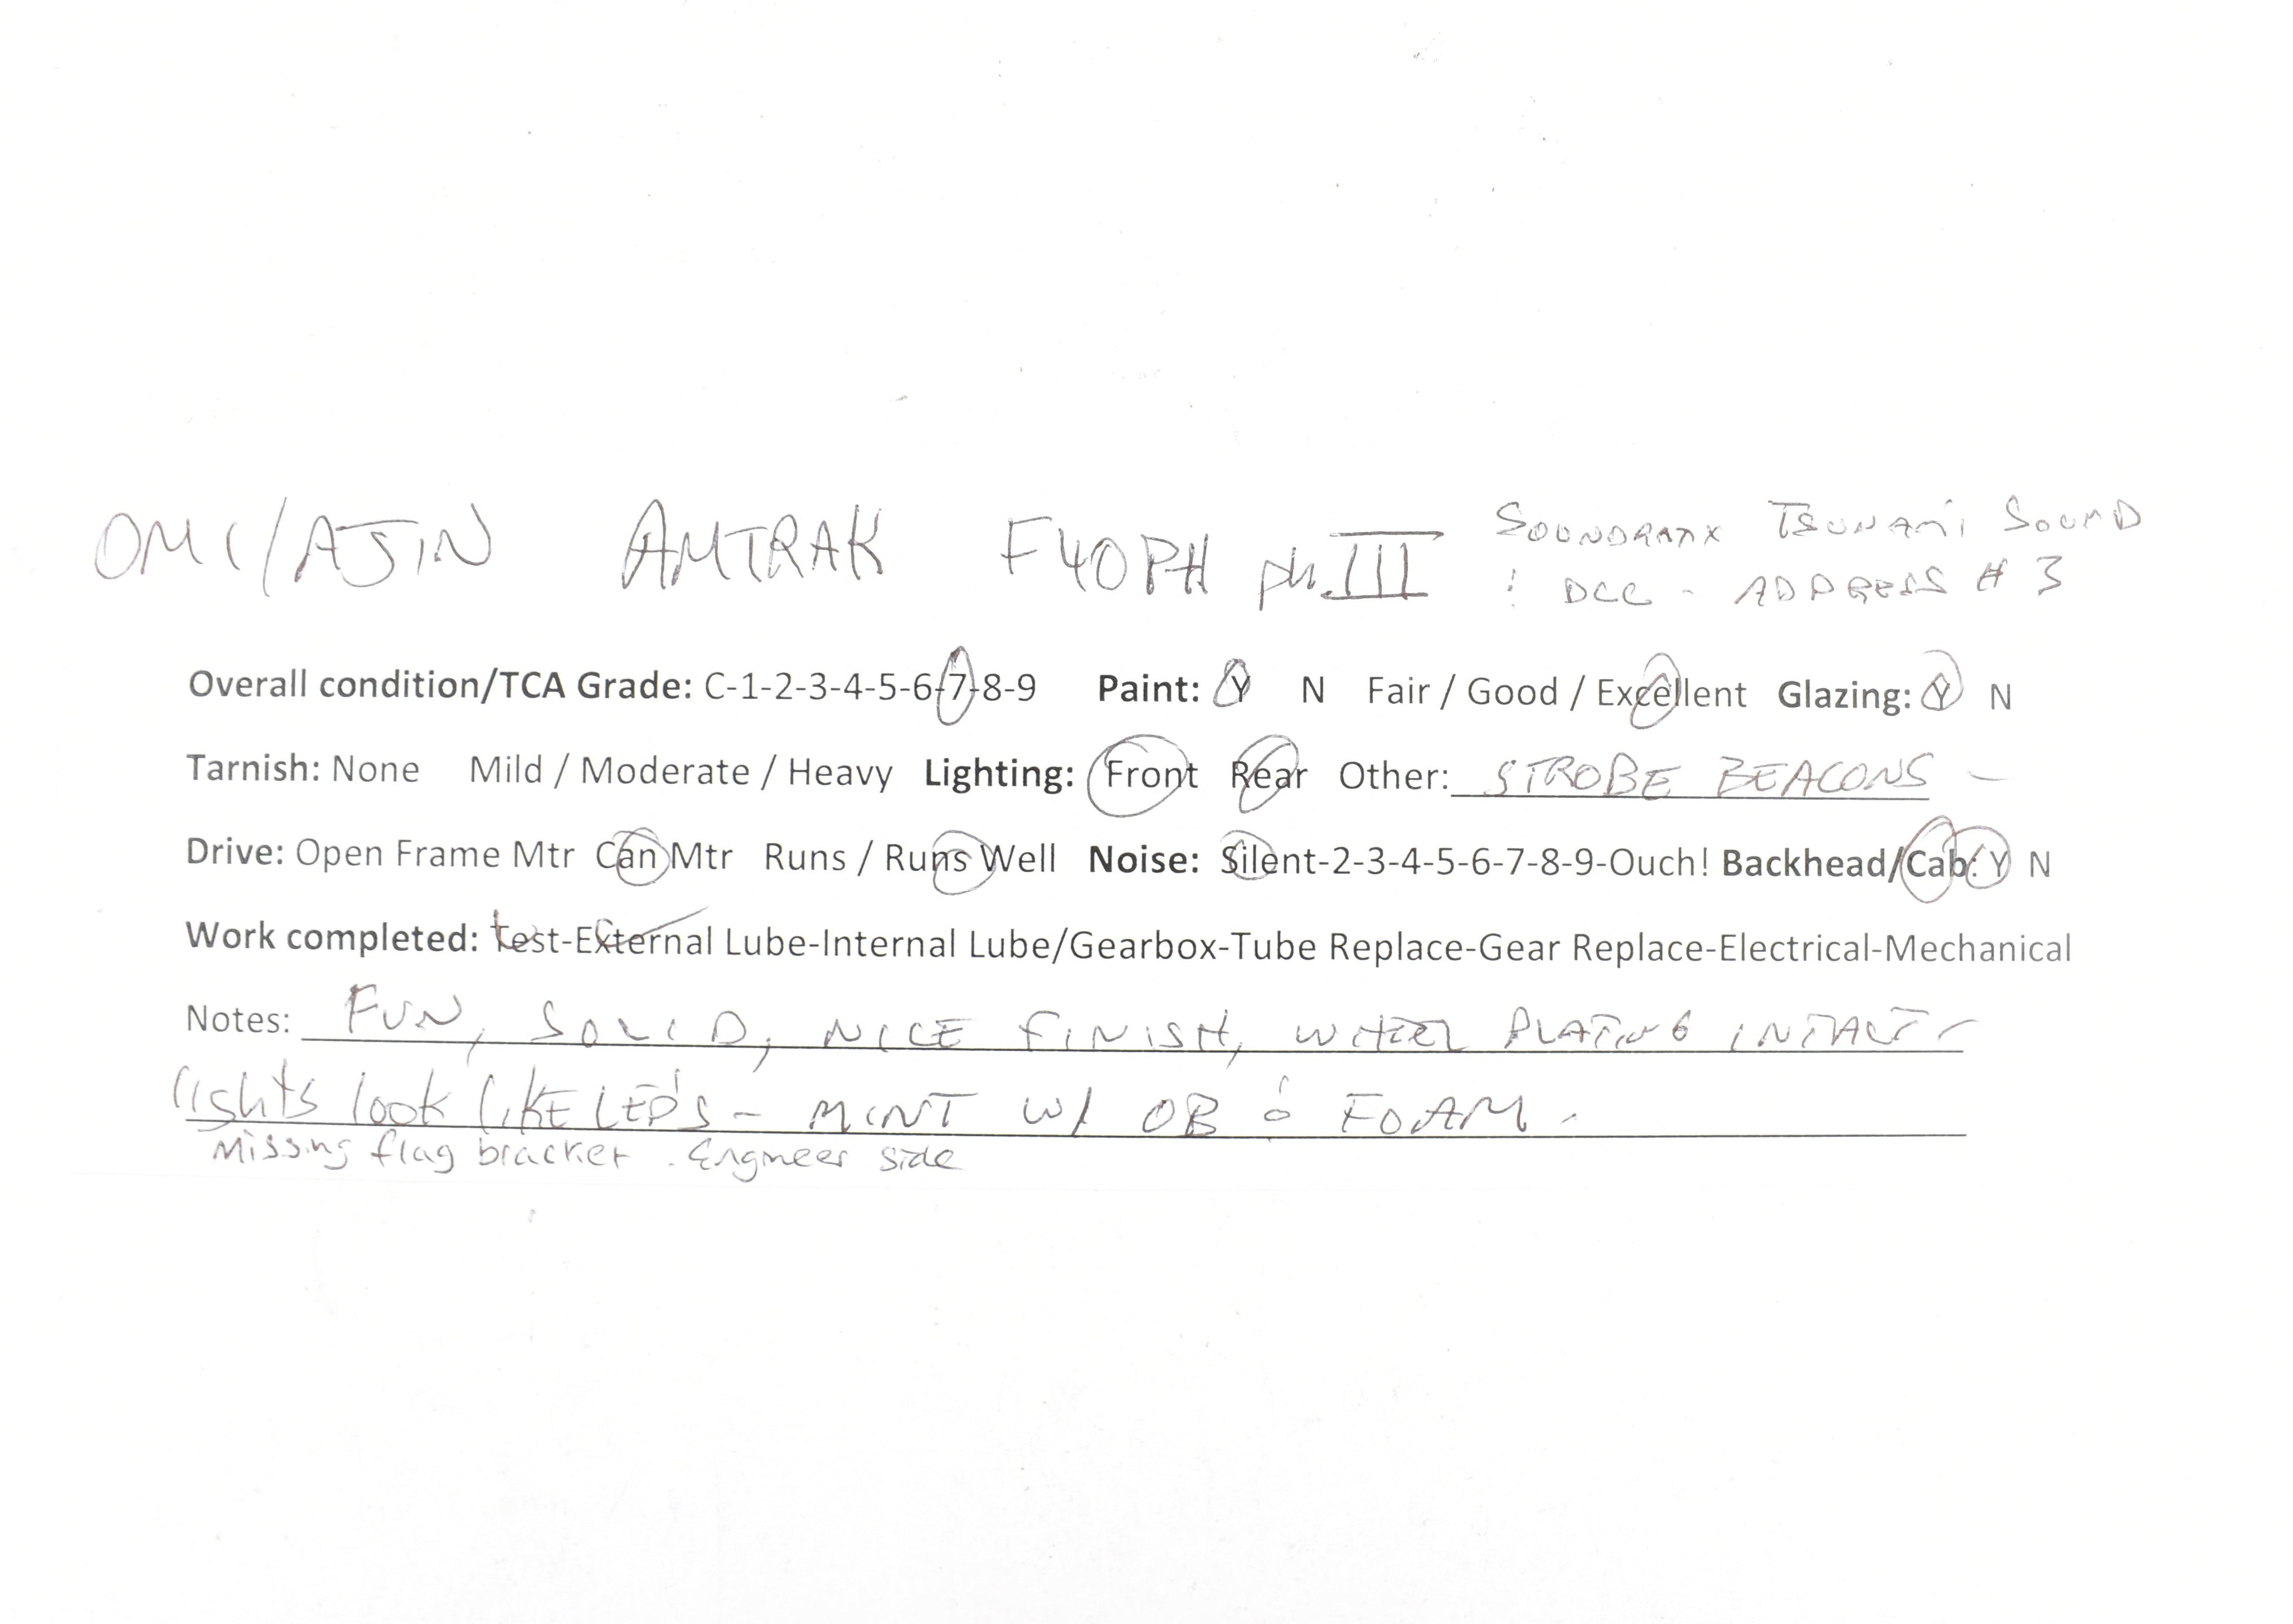 OMI/AJIN AMTRAK F40PH ph. III SOUNDTRAXX TSUNAMI SOUND
! DCC - ADDRESS # 3
Overall condition/TCA Grade: C-1-2-3-4-5-6-7-8-9 Paint: Y N Fair / Good / Excellent Glazing: Y N
Tarnish: None Mild / Moderate / Heavy Lighting: Front Rear Other: STROBE BEACONS -
Drive: Open Frame Mtr Can Mtr Runs / Runs Well Noise: Silent-2-3-4-5-6-7-8-9-Ouch! Backhead/Cab: Y N
Work completed: Test-External Lube-Internal Lube/Gearbox-Tube Replace-Gear Replace-Electrical-Mechanical
Notes: FUN, SOLID, NICE FINISH, WHEEL PLATING INTACT -
lights look LIKE LED'S - MINT W/ OB & FOAM -
Missing flag bracket . Engineer side